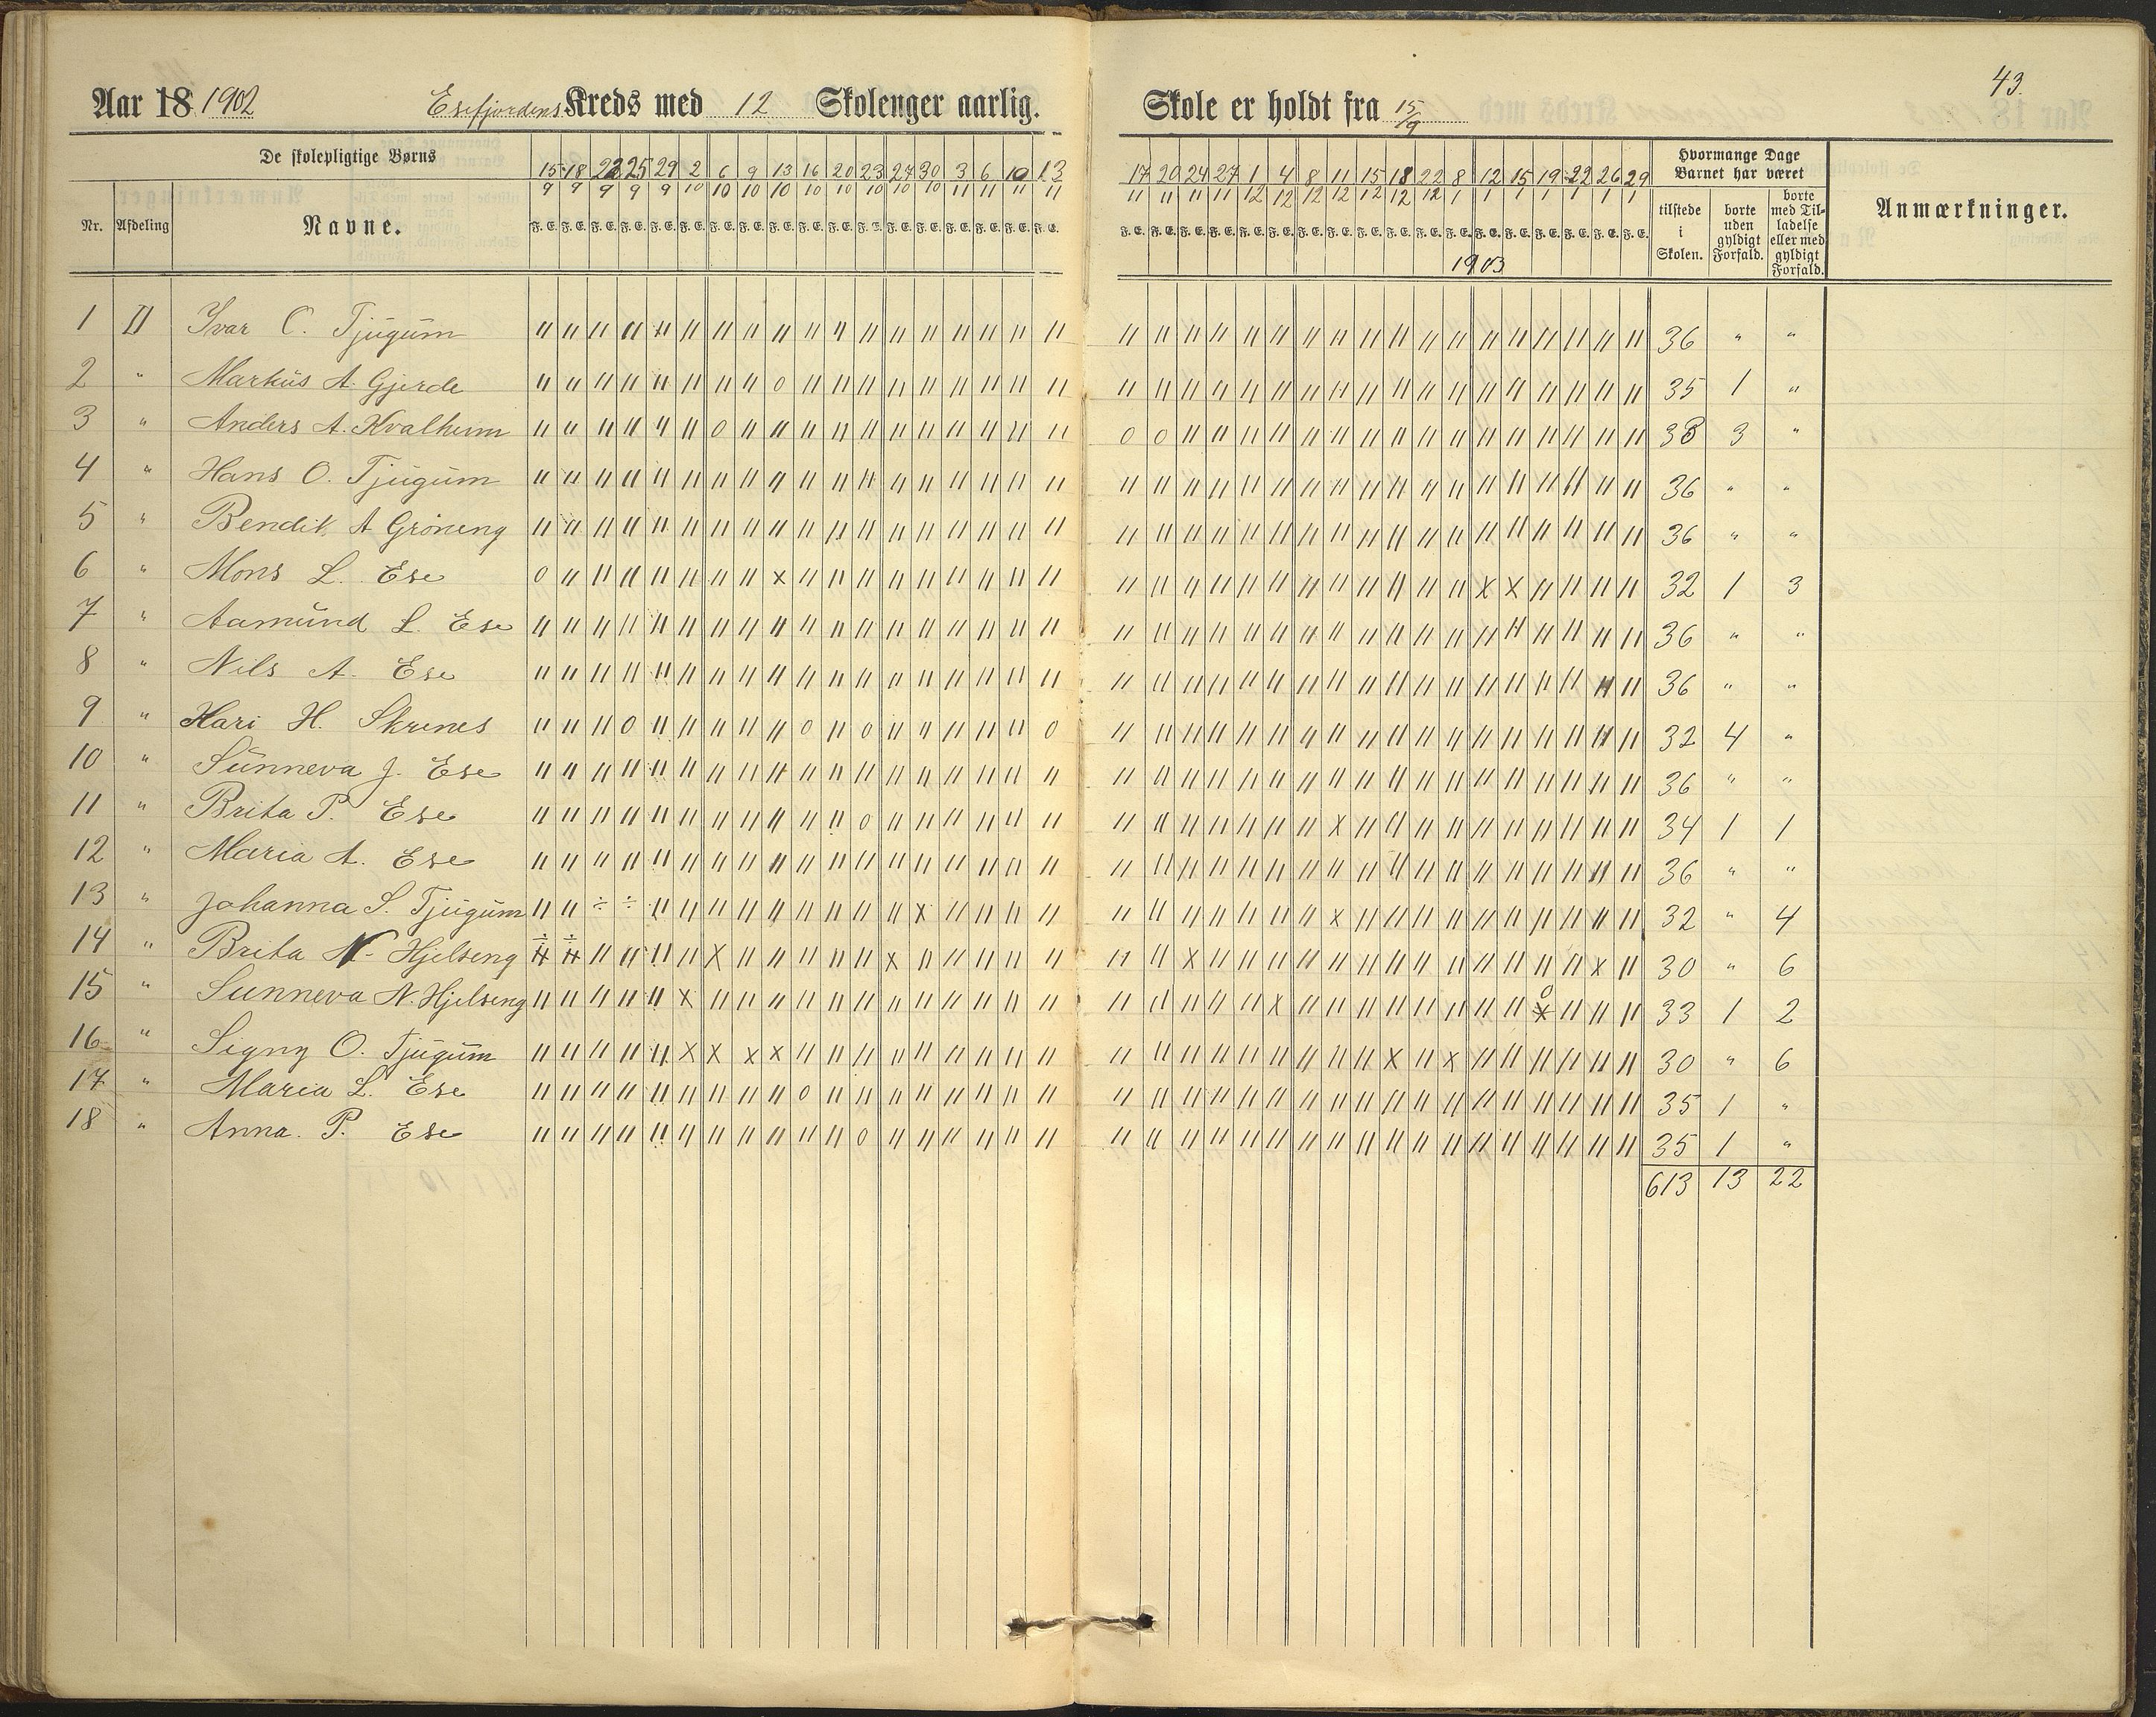 43.
Aar 18 1902 Esefjordens Kreds med 12 Skolenger aarlig. Skole er holdt fra 15/9
De skolepligtige Børns
Nr. Afdeling Navne.
15/9 18/9 22/9 25/9 29/9 2/10 6/10 9/10 13/10 16/10 20/10 23/10 27/10 30/10 3/11 6/11 10/11 13/11
17/11 20/11 24/11 27/11 1/12 4/12 8/12 11/12 15/12 18/12 22/12 8/1 12/1 15/1 19/1 22/1 26/1 29/1
F. E. F. E. F. E. F. E. F. E. F. E. F. E. F. E. F. E. F. E. F. E. F. E. F. E. F. E. F. E. F. E. F. E. F. E.
F. E. F. E. F. E. F. E. F. E. F. E. F. E. F. E. F. E. F. E. F. E. F. E. F. E. F. E. F. E. F. E. F. E. F. E.
1903
Hvormange Dage
Barnet har været
tilstede
i
Skolen.
borte
uden
gyldigt
Forfald.
borte
med Til-
ladelse
eller med
gyldigt
Forfald.
Anmærkninger.
1 II Ivar C. Tjugum 36 " "
2 " Markus A. Gjerde 35 1 "
3 " Anders A. Kvalheim 33 3 "
4 " Hans O. Tjugum 36 " "
5 " Bendik A Gröneng 36 " "
6 " Mons L. Ese 32 1 3
7 " Aamund L. Ese 36 " "
8 " Nils A. Ese 36 " "
9 " Kari H. Skrenes 32 4 "
10 " Sunneva J. Ese 36 " "
11 " Brita P. Ese 34 1 1
12 " Maria A. Ese 36 " "
13 " Johanna S. Tjugum 32 " 4
14 " Brita N. Hjelseng 30 " 6
15 " Sunneva N. Hjelseng 33 1 2
16 " Signy O. Tjugum 30 " 6
17 " Maria L. Ese 35 1 "
18 " Anna. P. Ese 35 1 "
613 13 22